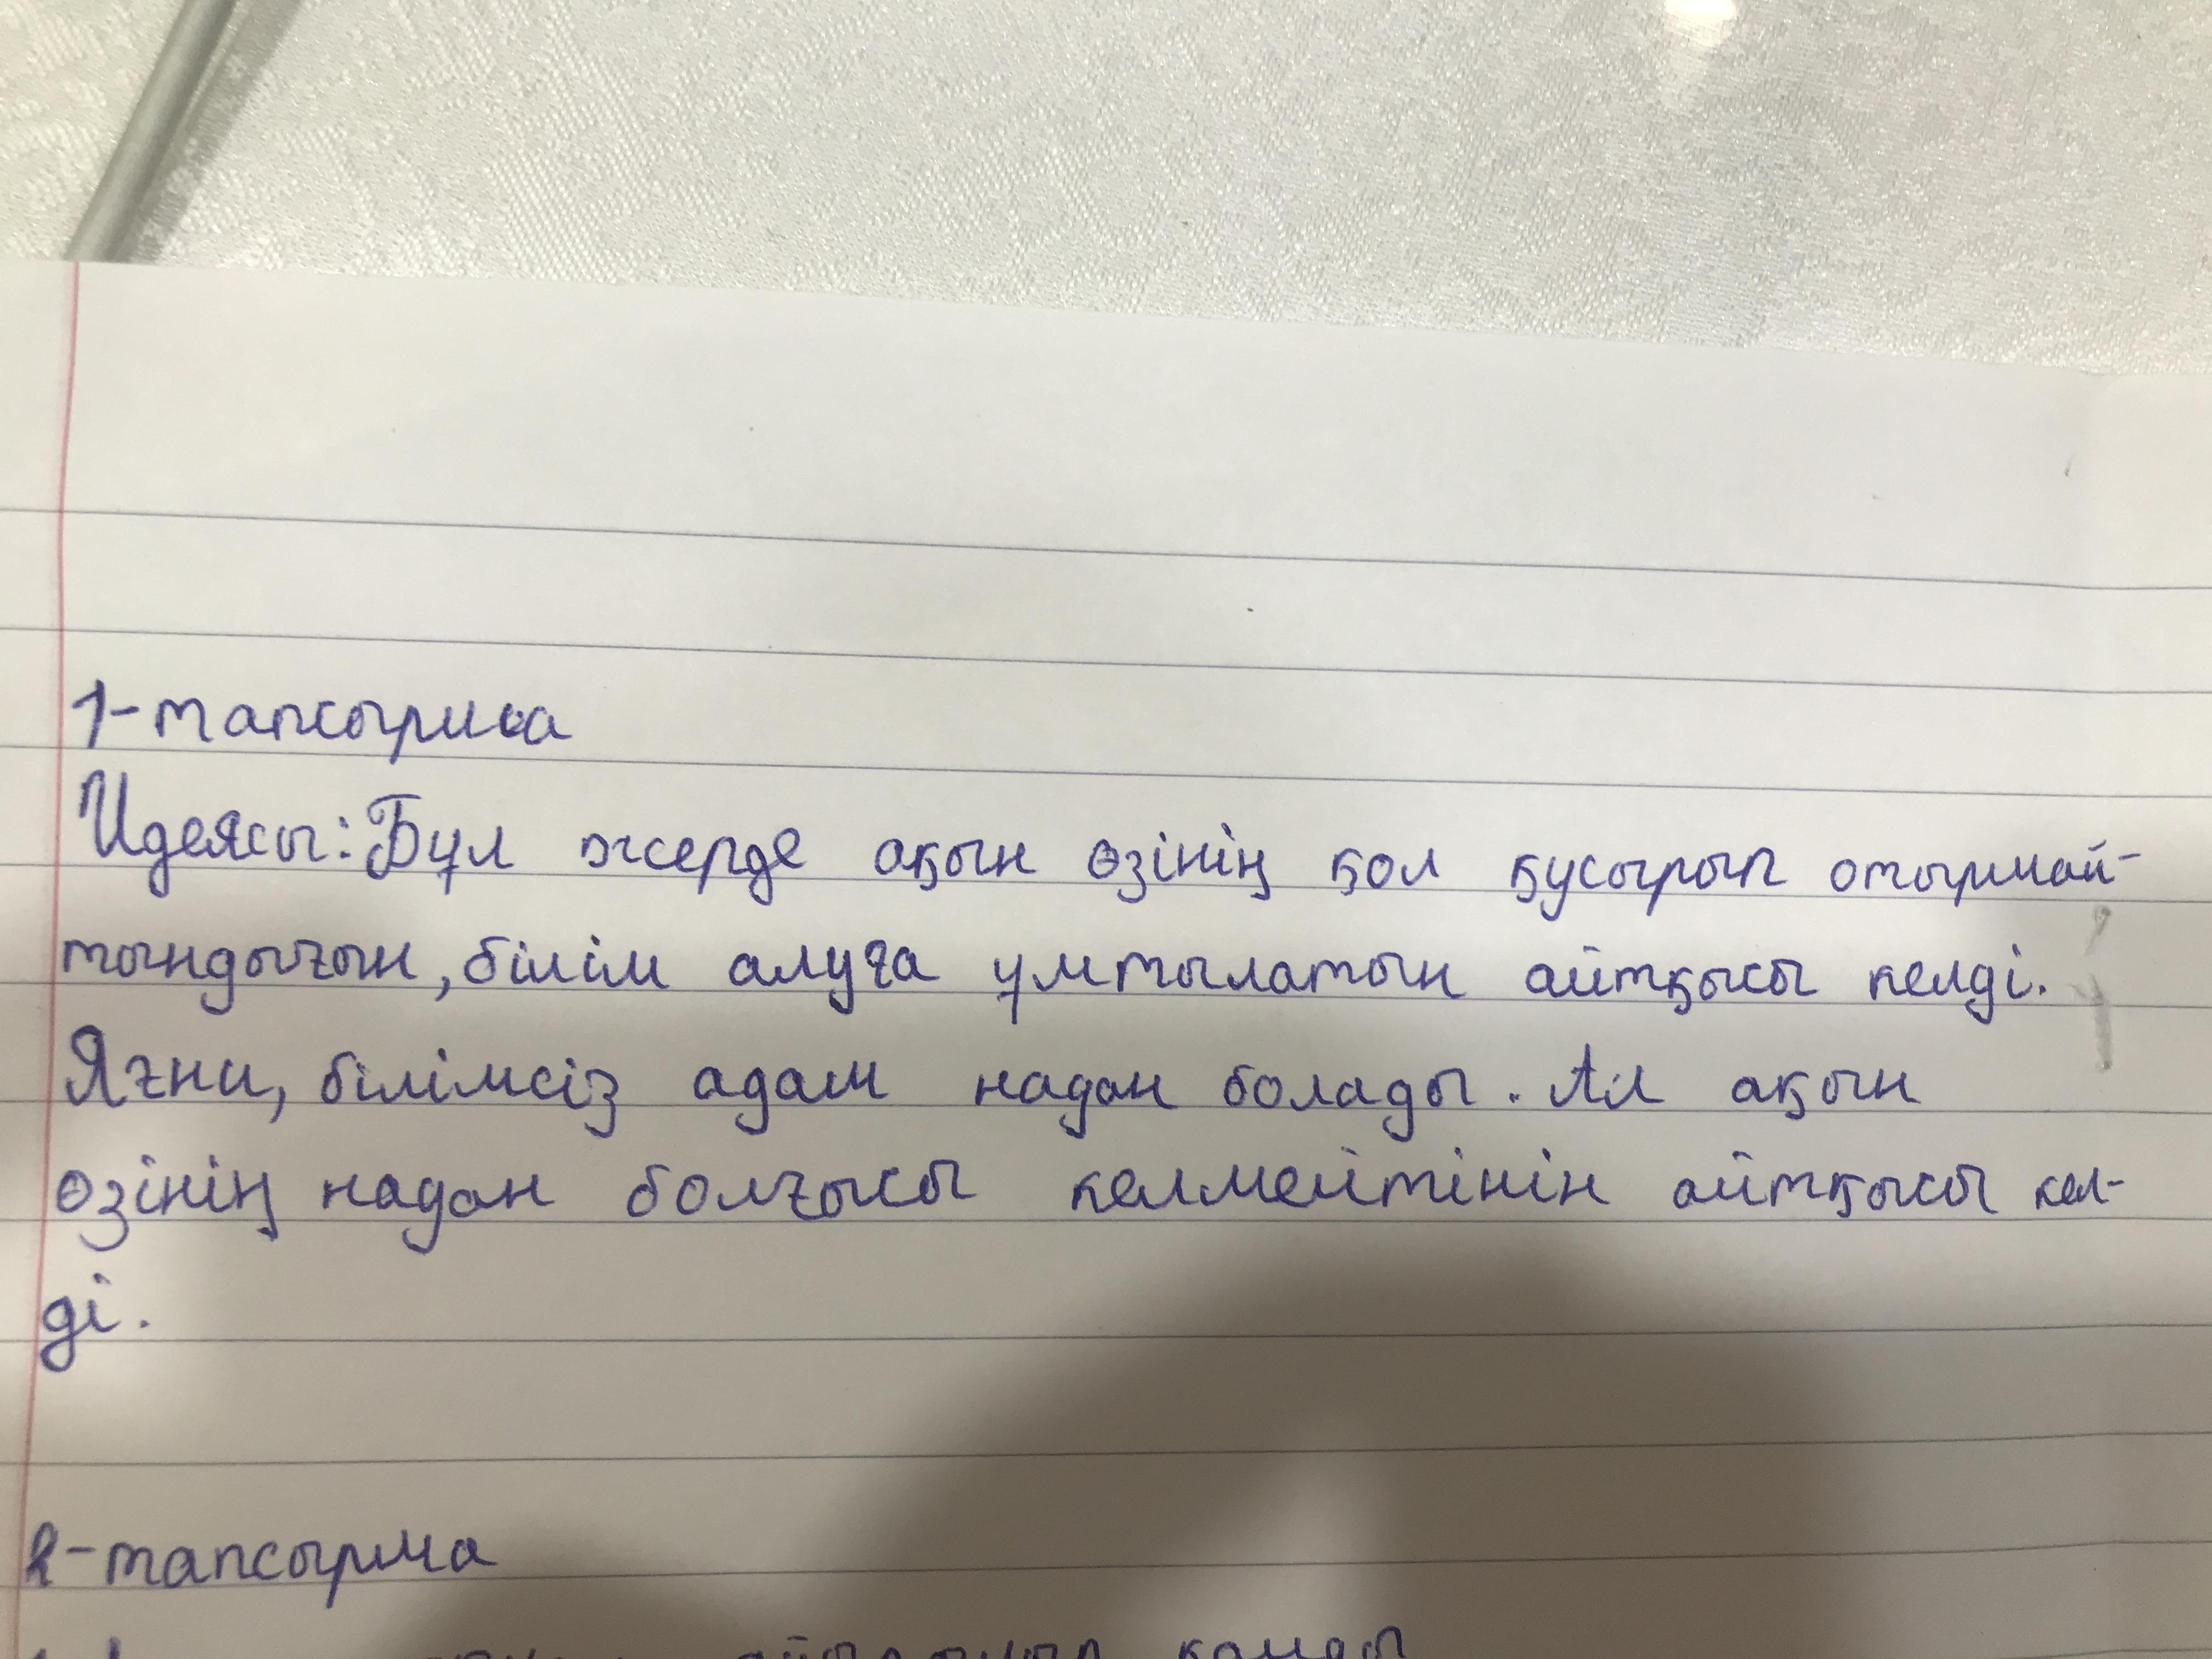 1-тапсырма
Идеясы: Бұл жерде ақын өзінің қол қусырып отырмай-
тындығын, білім алуға ұмтылатын айтқысы келді.
Яғни, білімсіз адам надан болады. Ал ақын
өзінің надан болғысы келмейтінін айтқысы кел-
ді.
2-тапсырма